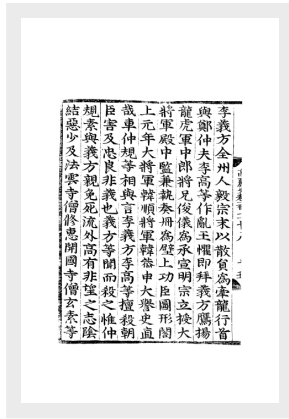 李義方全州人毅宗末以散員爲牽龍行首
與鄭仲夫李高等作亂王懼即拜義方鷹揚
龍虎軍中郎將兄俊儀爲承宣明宗立授大
將軍殿中監兼執奏冊爲壁上功臣圖形閣
上元年大將軍韓順將軍韓恭申大譽史直
哉車仲規等相與言李義方李高等擅殺朝
臣害及忠良非義也義方等聞而殺之惟仲
規素與義方親免死流外高有非望之志陰
結惡少及法雲寺僧修惠開國寺僧玄素等